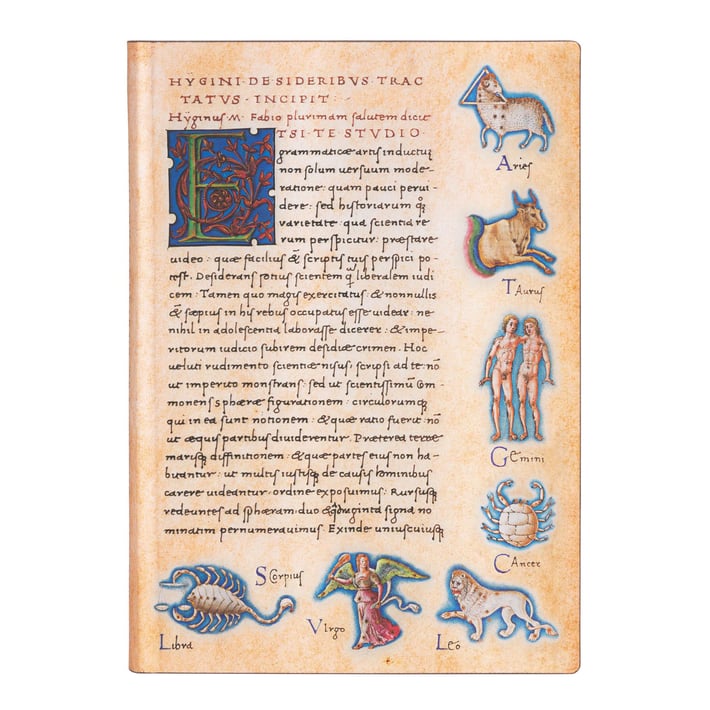 HYGINI·DE·SIDERIBVS·TRAC
TATVS·INCIPIT·
Hÿginus·M· Fabio plurimam salutem dicit
E
TSI·TE STVDIO·
grammaticæ artis inductuꝫ
non solum versuum mode-
ratione: quam pauci pervi-
dere: sed historiarum qꝫ
varietate: qua scientia re
rum perspicitur: præstare
uideo: quæ facilius & scriptis tuis perspici po-
test. Desiderans potius scientem q̃ liberalem iudi
cem: Tamen quo magis exercitatus: & nonnullis
& sæpius in his rebus occupatus esse uidear: ne
nihil in adolescentia laborasse dicerer: & impe-
ritorum iudicio subirem desidiæ crimen. Hoc
ueluti rudimento scientiæ nisus, scripsi ad te: nō
ut imperito monstrans: sed ut scientissimū com-
monens sphæræ figurationem: circulorumqꝫ
qui in ea sunt notionem: & quæ ratio fuerit: nō
ut æquis partibus diuiderentur. Præterea terræ
marisqꝫ diffinitionem: & quæ partes eius non ha-
bitantur: ut multis iustisqꝫ de causis hominibus
carere uideantur: ordine exposuimus. Rursusqꝫ
redeuntes ad sphæram: duo & q̃draginta signa no
minatim pernumerauimus. Exinde uniuscuiusqꝫ
Aries
Taurus
Gemini
Cancer
Leo
Virgo
Scorpius
Libra